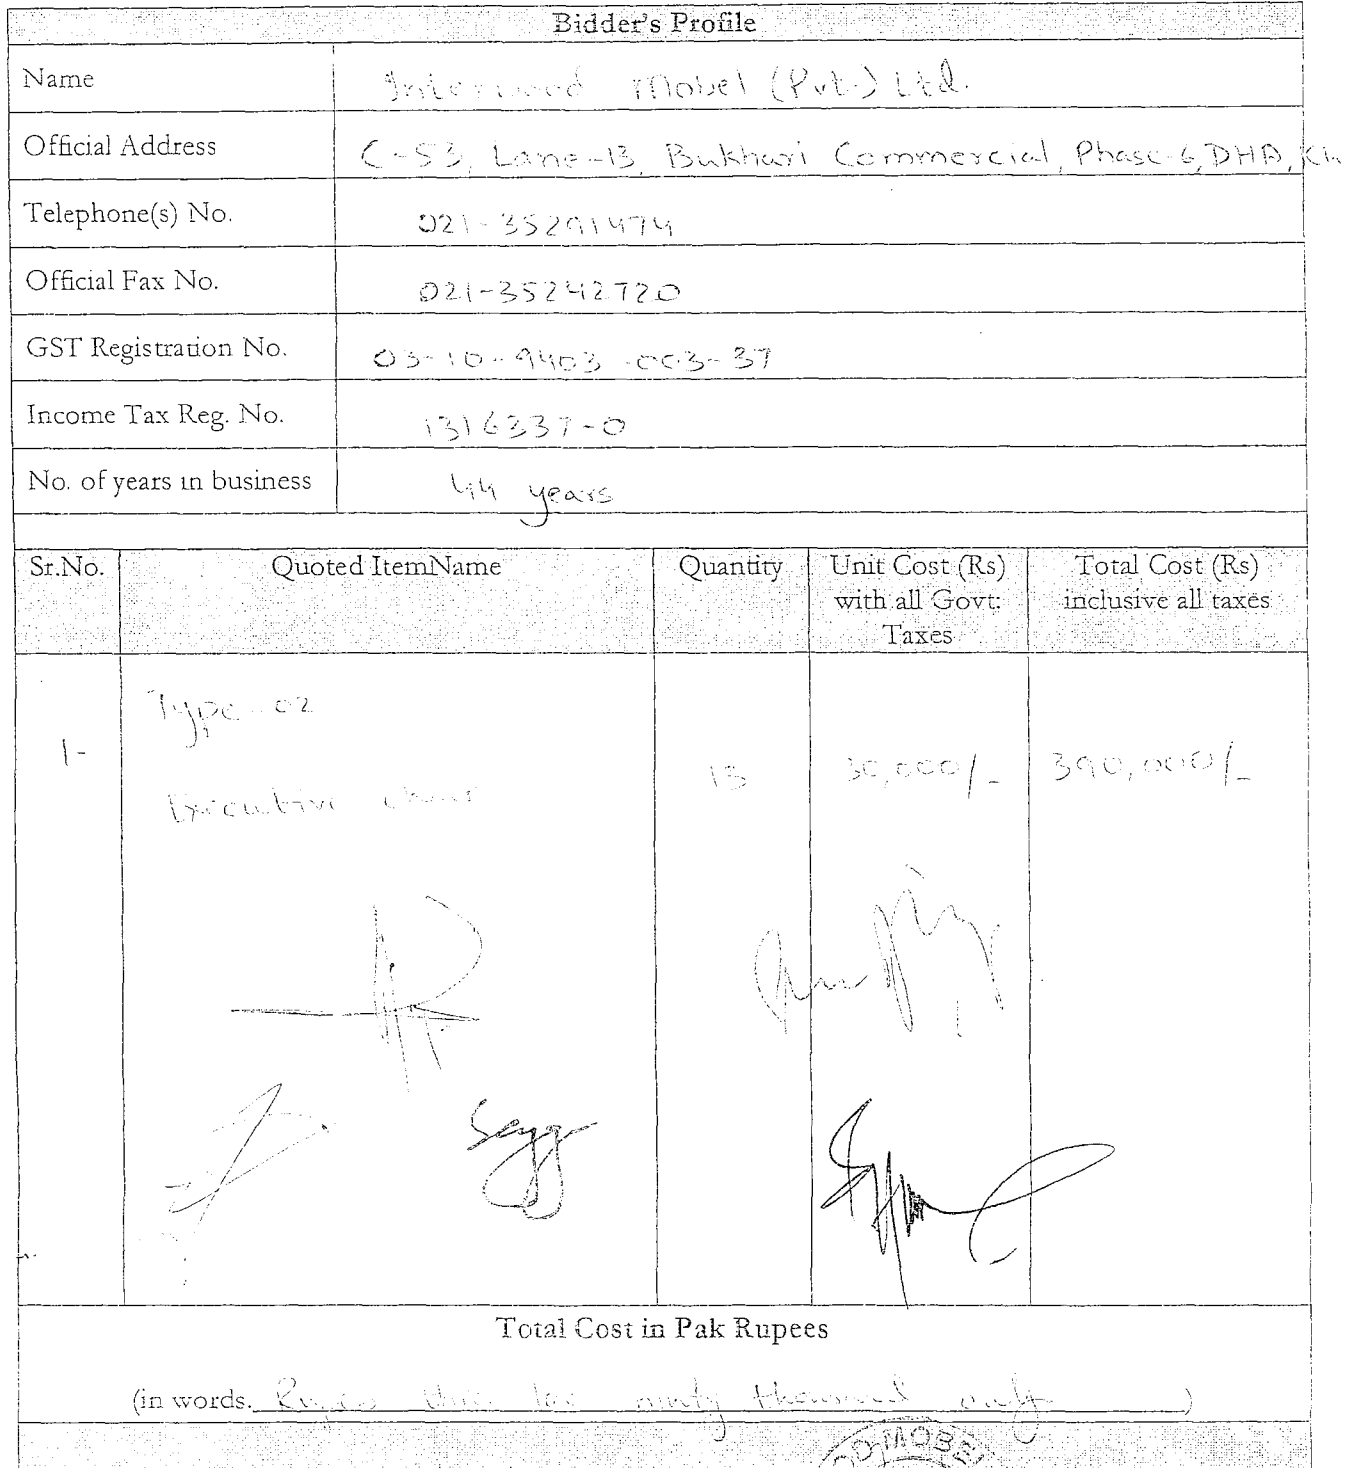 Bidder's Profile
Name Interwood Mobel (Pvt.) Ltd.
Official Address C-53, Lane-13, Bukhari Commercial, Phase-6, DHA, Khi
Telephone(s) No. 021-35291474
Official Fax No. 021-35242720
GST Registration No. 03-10-9403-003-37
Income Tax Reg. No. 1316337-0
No. of years in business 44 years
Sr.No. Quoted ItemName Quantity Unit Cost (Rs) with all Govt: Taxes Total Cost (Rs) inclusive all taxes
Type-02
1- 13 30,000/- 390,000/-
Executive chair
Total Cost in Pak Rupees
(in words. Rupees three lac ninety thousand only)
OD MOBE